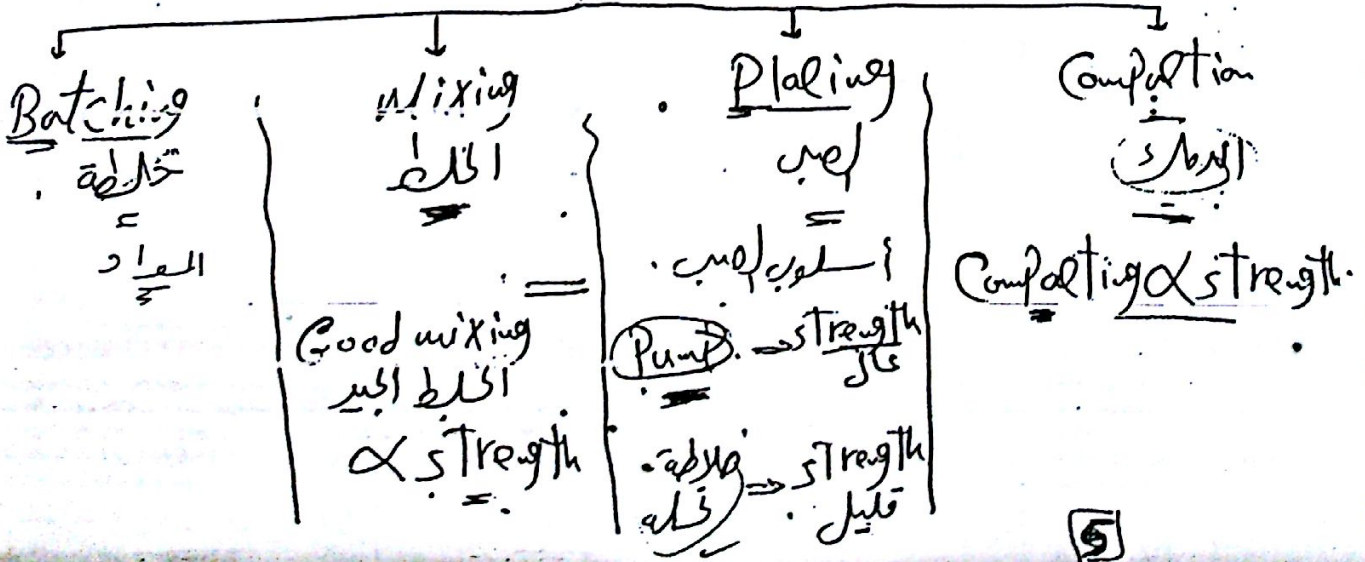 Batching
خلطة
المواد
Mixing
الخلط
Good mixing
الخلط الجيد
∝ strength
Placing
الصب
أسلوب الصب
Pump ⇒ strength
عالي
خلاطة ⇒ strength
قليل
Compaction
الدمك
Compacting ∝ strength
5